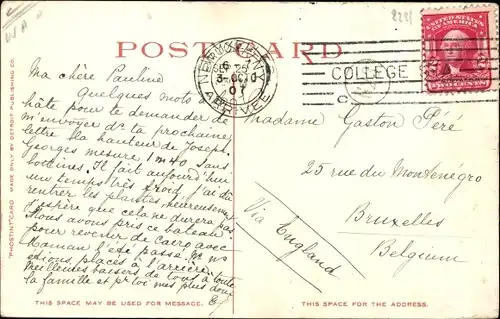 POST CARD
Ma chère Pauline
Quelques mots à la
hâte pour te demander de
m'envoyer ds ta prochaine
lettre la hauteur de Joseph.
Georges mesure 1m40 sans
bottines. Il fait aujourd'hui
un temps très froid, j'ai dû
rentrer les plantes, heureusement
j'espère que cela ne durera pas
Nous avons pris ce bateau
pour revenir de Cairo avec
Maman l'été passé. Ns ns
étions placés à l'arrière.
Meilleures baisers de tous à toute
la famille et pr toi mes plus doux
E.
Madame Gaston Péré
25 rue du Monténégro
Bruxelles
Belgium
Via England
NEW YORK, N.Y.
COLLEGE
UNITED STATES OF AMERICA
TWO CENTS
"PHOSTINT" CARD MADE ONLY BY DETROIT PUBLISHING CO.
THIS SPACE MAY BE USED FOR MESSAGE.
THIS SPACE IS FOR THE ADDRESS.